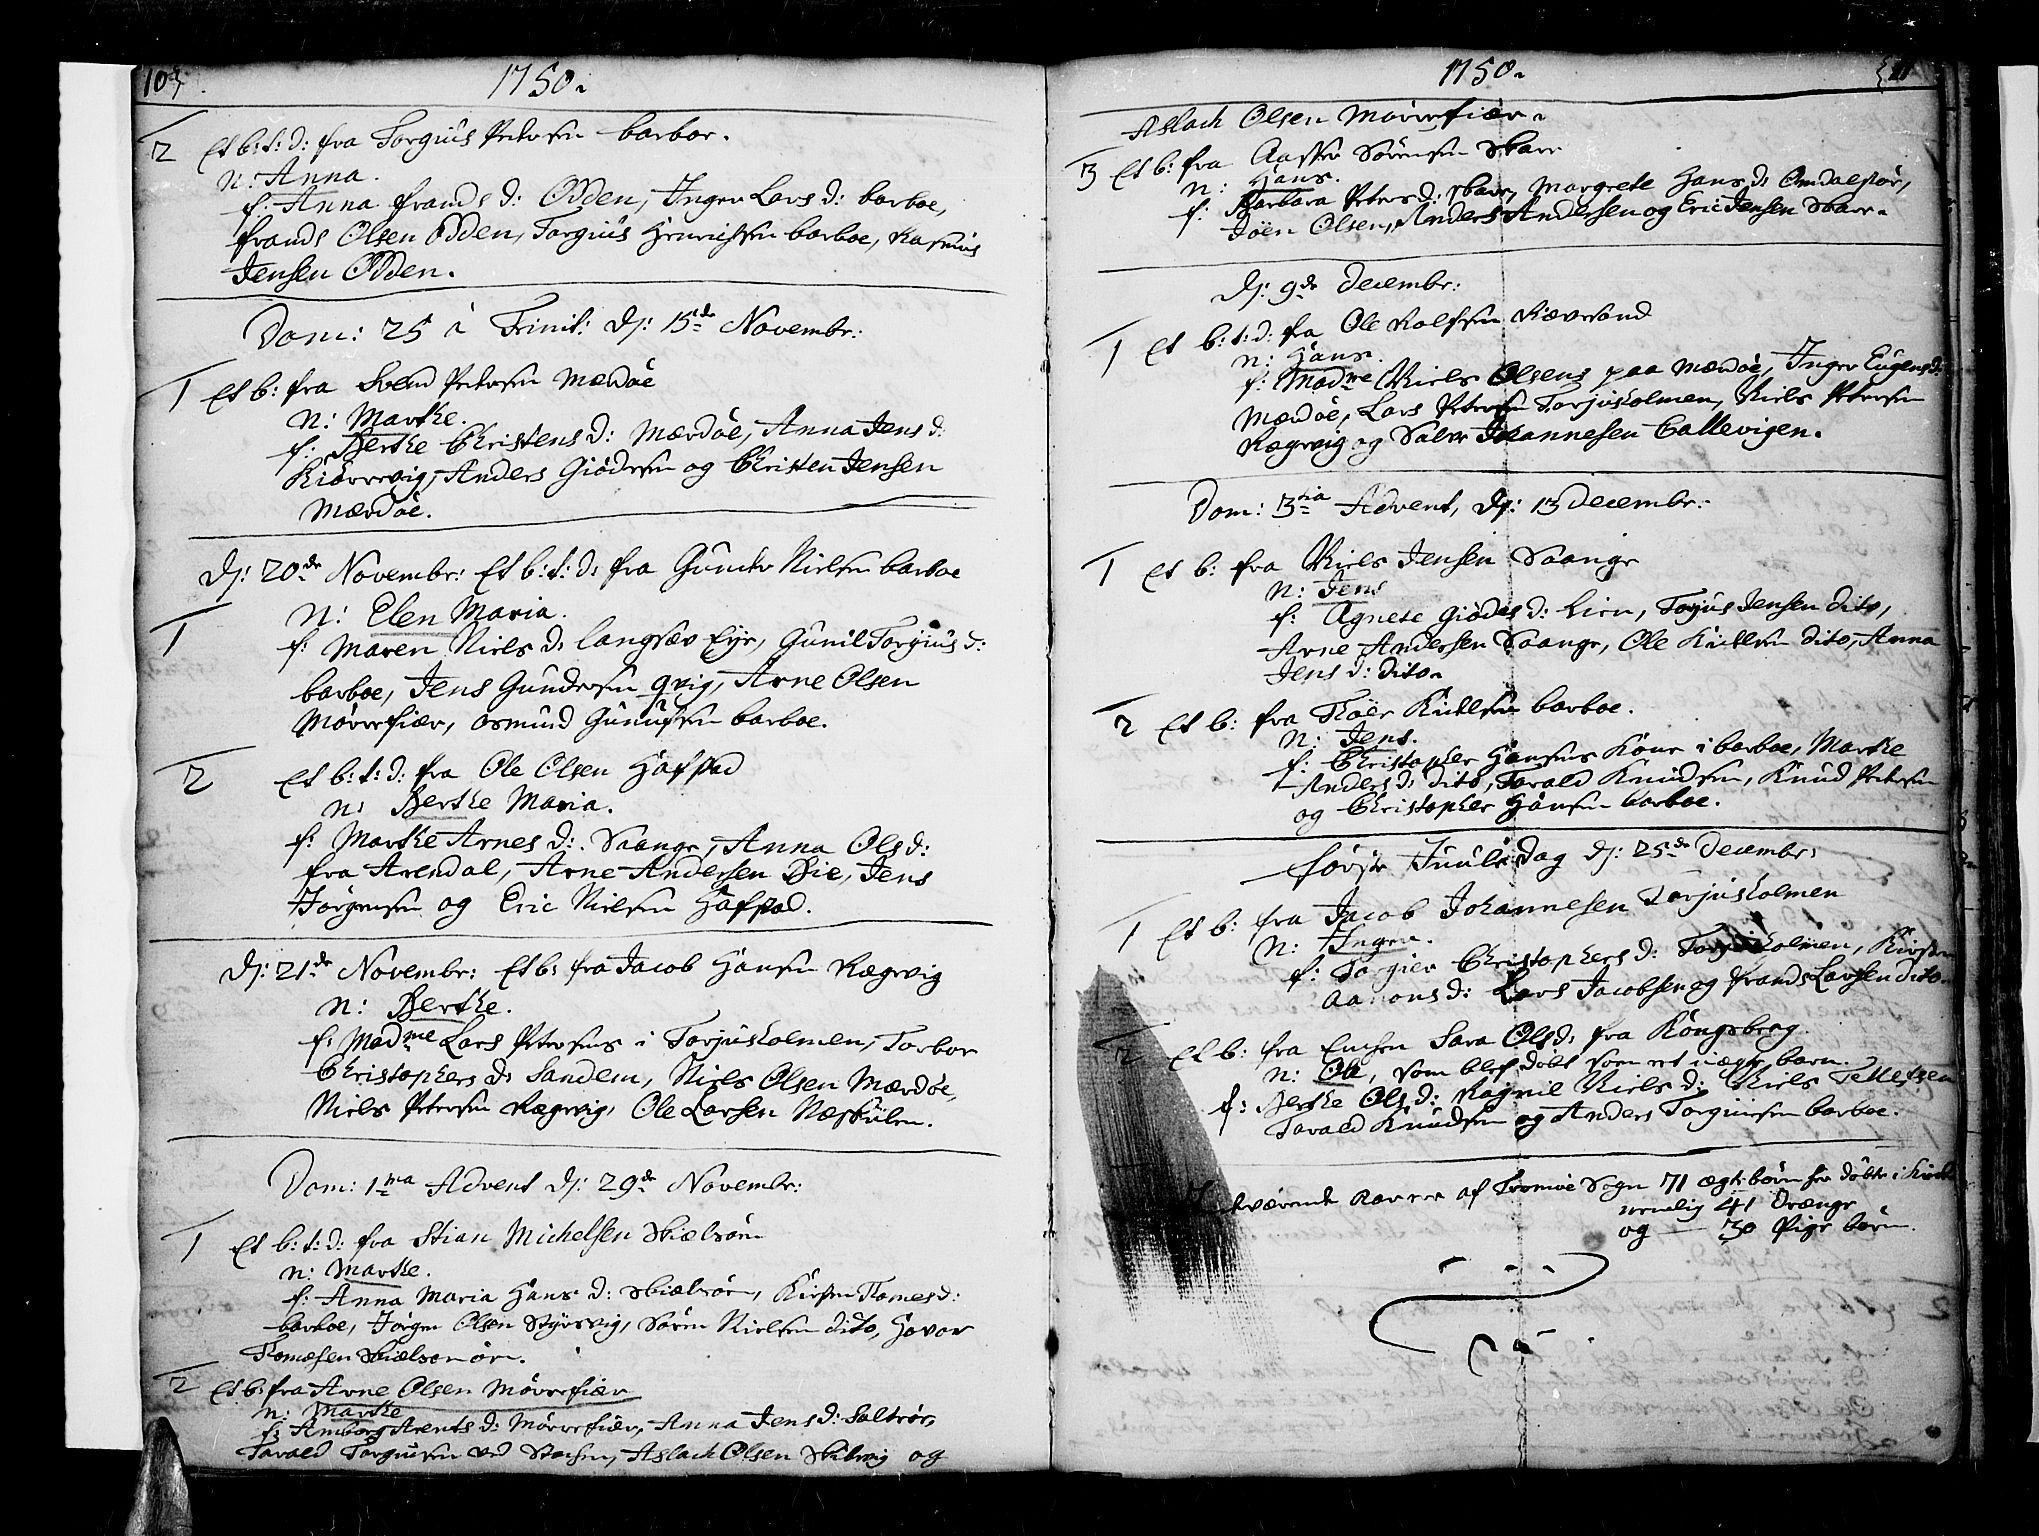 10
1750.
2 Et b: t: d: fra Torgius Pedersen barboe.
N: Anna.
f: Anna frands d: Odden, Inger Lars d: barboe,
frands Olsen Odden, Torgius Henrichsen barboe, Rasmus
Jensen Odden.
Dom: 25 à Trinit: Dj: 15de Novembr:
1 Et b: fra Svend Pedersen Mærdøe
N: Marthe.
f: Berthe Christens d: Mærdøe, Anna Jens d:
Kiørrvig, Anders Giødesen og Christen Jensen
Mærdøe.
Dj: 20de Novembr: Et b: t: d: fra Gunder Nielsen barboe
1 N: Elen Maria.
f: Maren Niels d: Langsæv Eye, Gunil Torgius d:
barboe, Jens Gundersen qvig, Arne Olsen
Mørrefiær, Osmund Gunufsen barboe.
2 Et b: t: d: fra Ole Olsen Hafstad
N: Berthe Maria.
f: Marthe Arnes d: Saange, Anna Ols d:
fra Arendal, Arne Andersen Bie, Jens
Jørgensen og Eric Nielsen Hafstad.
Dj: 21de Novembr: Et b: fra Jacob Hansen Rægevig
N: Berthe.
f: Madme Lars Petersens i Torjusholmen, Torbor
Christophers d: Sandem, Niels Olsen Mærdøe,
Niels Petersen Rægevig, Ole Larsen Næskilen.
Dom: 1ma Advent Dj: 29de Novembr:
1 Et b: t: d: fra Stian Michelsen Skielsøm
N: Marthe.
f: Anna Maria Hans d: Skielsøm, Kirsten Tomes d:
barboe, Jørgen Olsen Styrsvig, Søren Nielsen dito, Havor
Tomesen
2 Et b: fra Arne Olsen Mørrefiær
N: Marthe
f: Amborg Arents d: Mørrefiær, Anna Jens d: Saltrøe,
Tarald Torgiusen ved Stachen, Aslach Olsen Skilevig og
1750.
11
Aslach Olsen Mørrefiær.
3 Et b: fra Aasse Sørensen Skare
N: Hans.
f: Barbara Peters d: Skare, Margrete Hans d: Omdalsøer,
Joen Olsen, Anders Andersen og Eric Jensen Skare.
Dj: 9de Decembr:
1 Et b: t: d: fra Ole Rolfsen Rævesand
N: Hans.
f: Madme Niels Olsens paa Mærdøe, Inger Eugens d:
Mærdøe, Lars Petersen Torjusholmen, Niels Petersen
Rægevig og Salve Johannesen Gallevigen.
Dom: 3tia Advent, Dj: 13 Decembr:
1 Et b: fra Niels Jensen Saange
N: Jens
f: Agnete Giødes d: Lien, Torjus Jensen dito,
Arne Andersen Saange, Ole Knudsen dito, Anna
Jens d: dito.
2 Et b: fra Roer Knudsen barboe.
N: Jens.
f: Christopher Hansens Kone i barboe, Marthe
Anders d: dito, Tarald Knudsen, Knud Petersen
og Christopher Hansen barboe.
Første Juule Dag Dj: 25de Decembr:
1 Et b: fra Jacob Johannesen Torjusholmen
N: Inger.
f: Torgier Christophers d: Torjusholmen, Kirsten
Aanons d: Lars Jacobsen og frands Larsen dito.
2 Et b: fra Enchen Sara Ols d: fra Kongsberg.
N: Ole, som blef døbt som et uægte barn.
f: Berthe Ols d: Ragnil Niels d: Niels Tellefsen
Tarald Knudsen og Anders Torgiusen barboe.
værende af Tromøe Sogn 71 ægte børn her døbte i
nemlig 41 Drænge
og — 30 Pige børn.